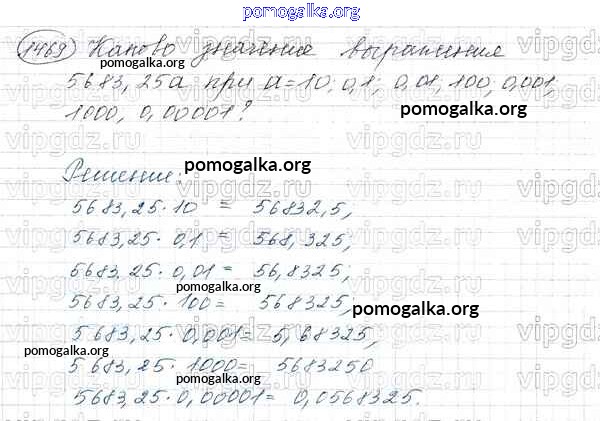 pomogalka.org
1469) Каково значение выражения
pomogalka.org
5683,25а при а=10; 0,1; 0,01, 100, 0,001,
pomogalka.org
1000, 0,00001?
pomogalka.org
Решение:
5683,25·10 = 56832,5;
5683,25·0,1= 568,325;
pomogalka.org
5683.25·0,01= 56,8325;
pomogalka.org
5683,25·100= 568325,
pomogalka.org
5683,25·0,001= 5,68325,
pomogalka.org
5683,25·1000= 5683250
pomogalka.org
5683,25·0,00001= 0,0568325.